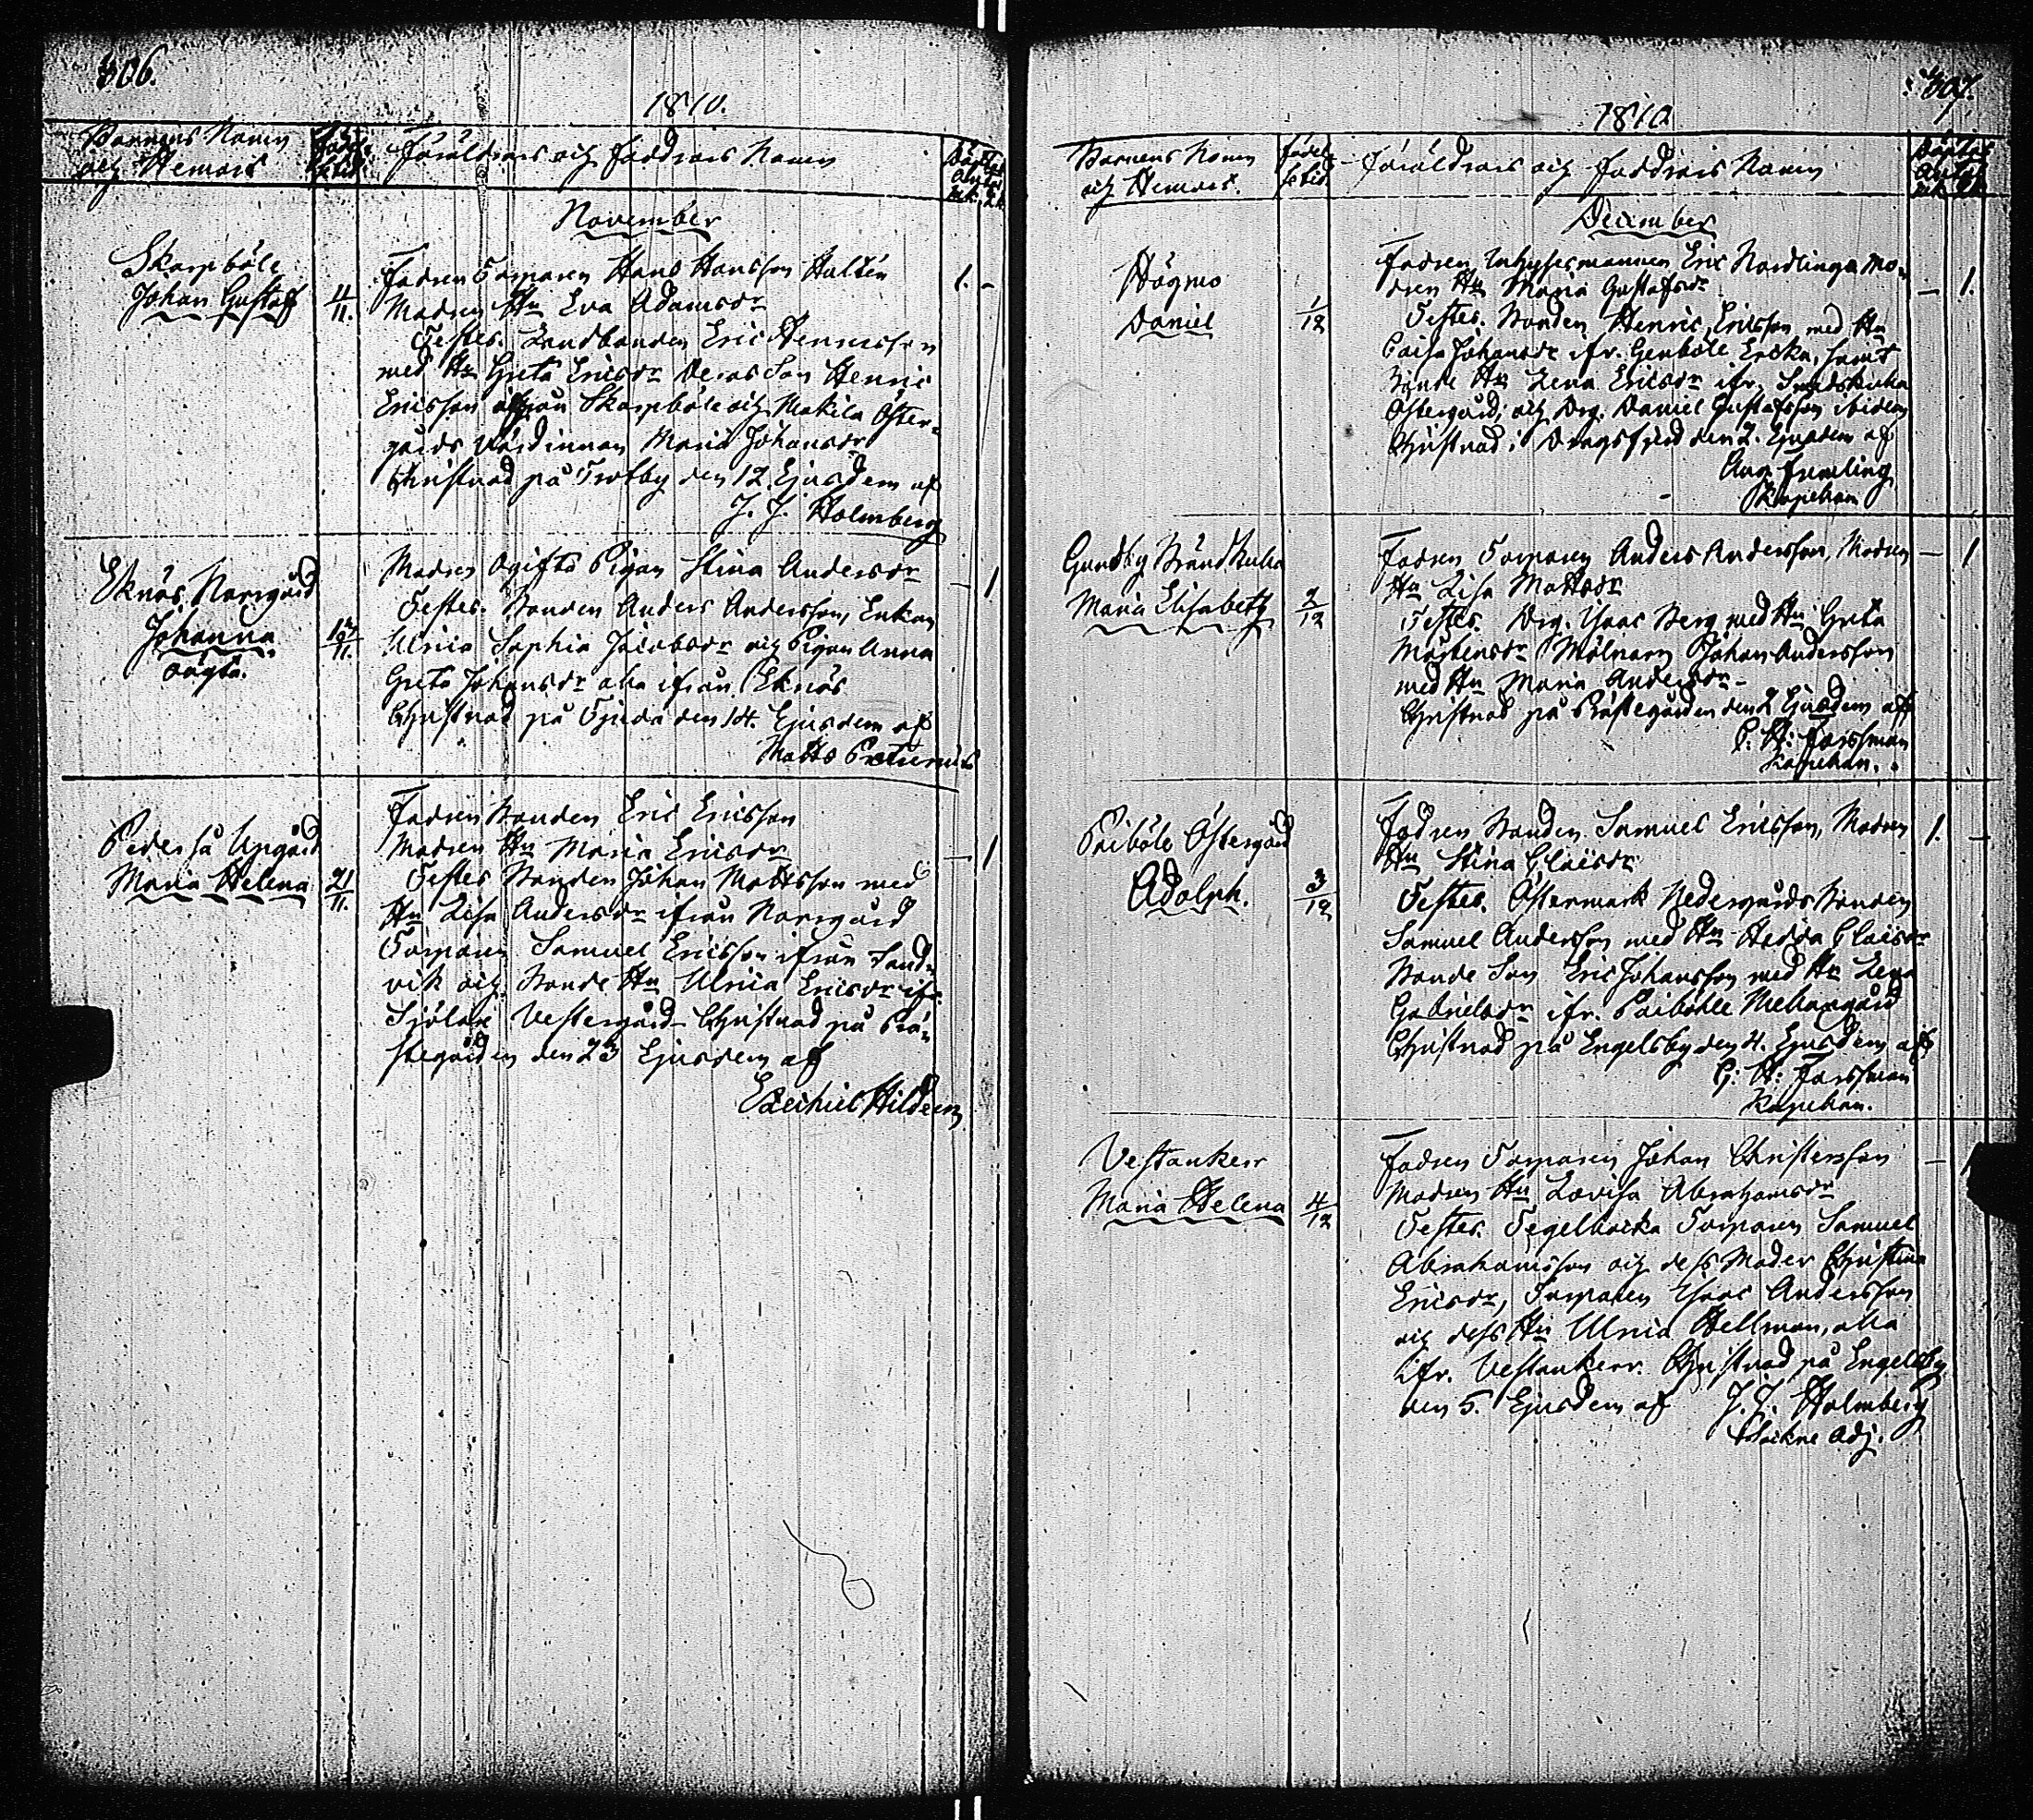 306.
1810.
Barnens Namn
och Hemort
Födel-
se tid
Föräldrars och Faddrars Namn
November
Skarpböle
Johan Gustaf
4/11.
Fadren Torparen Hans Hansson Hultén
1. -
Modren Hu Eva Adamsdr
Testes. Landbonden Eric Henricsson
med Hu Greta Ericsdr Deras Son Henric
Ericsson Skarpböle och Makila Öster-
gårds Värdinnan Maria Johansdr
Christnad på Tvotby den 12 Ejusdem af
J. J. Holmberg
Eknäs Norrgård
Johanna
oägta.
12/11.
Modren Ogifta Pigan Stina Andersdr
- 1
Testes. Bonden Anders Andersson, Enkan
Ulrica Sophia Jacobsdr och Pigan Anna
Greta Johansdr alla ifrån Eknäs
Christnad på Tjuda den 14. Ejusdem af
Matts
Pederså Uppgård
Maria Helena
21/11.
Fadren Bonden Eric Ericsson
Modren Hu Maria Ericsdr
- 1
Testes Bonden Johan Mattsson med
Hu Lisa Andersdr ifrån Norrgård
Torparen Samuel Ericsson ifrån Sand-
vik och Bonde Hu Ulrica Ericsdr ifr.
Sjölax Vestergård Christnad på Prä-
stegården den 23 Ejusdem af
Ezechiel Hildeen
307.
1810
Barnens Namn
och Hemort.
Födel-
se tid.
Föräldrars och Faddrars Namn
December
Högmo
Daniel
1/12
Fadren Inhysesmannen Eric Nordlingr Mo-
dren Hu Maria Gustafsdr
- 1.
Testes. Bonden Henric Ericsson med Hu
Caisa Johansdr ifr. Genböle Ericka, samt
Bonde Hu Lena Ericsdr ifr. Smedskulla
Östergård, och Drg. Daniel Gustafsson ibidem
Christnad i Dragsfjerd den 2. Ejusdem af
Aug.
Kapellan
Gundby Brändkulla
Maria Elisabeth
2/12
Fadren Torparen Anders Andersson, Modren
- 1
Hu Lisa Mattsdr
Testes. Drg. Isaac Berg med Hu Greta
Mårtensdr Mölnarn Johan Andersson
med Hu Maria Andersdr -
Christnad på Prästegården den 2 Ejusdem af
G: H: Forssman
Kapellan.
Paiböle Östergård
Adolph.
3/12
Fadren Bonden Samuel Ericsson, Modren
1. -
Hu Stina Claisdr
Testes. Östermark Nedergårds Bonden
Samuel Andersson med Hu Hedda Claisdr
Bonde Son Eric Johansson med Hu Lena
Gabrielsdr ifr. Paibohle Mellangård
Christnad på Engelsby den 4. Ejusdem af
G: H: Forssman
Kapellan.
Vestankerr
Maria Helena
4/12
Fadren Torparen Johan Christersson
-
Modren Hu Lovisa Abrahamsdr
Testes. Tegelbacka Torparen Samuel
Abrahamsson och dess Moder Christina
Ericsdr, Torparen Isaac Andersson
och dess Hu Ulrica Hellman, alla
ifr. Vestankerr. Christnad på Engelsby
den 5. Ejusdem af J. J. Holmberg
Sockne Adj.